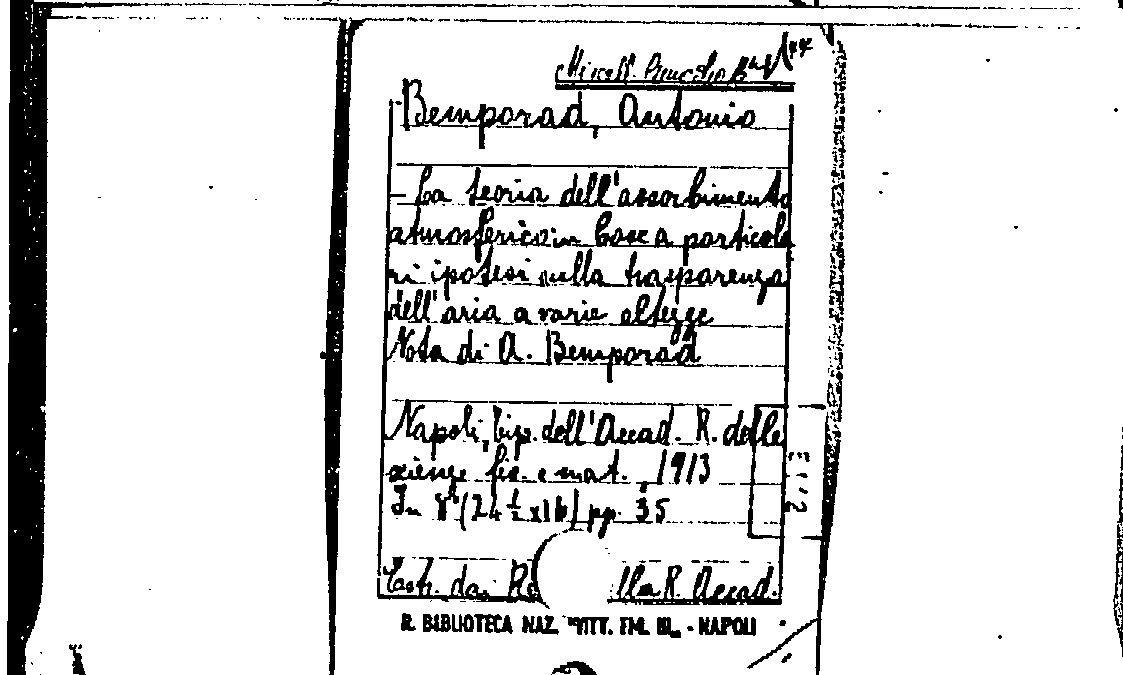 Bemporad, Antonio
- La teoria dell'assorbimento
atmosferico in base a particola
ri ipotesi sulla trasparenza
dell'aria a varie altezze
Nota di A. Bemporad
Napoli, Tip. dell'Accad. R. delle
scienze fis. e mat., 1913
In 8° (24 ½ x 16) pp. 35
Estr. dai lla R. Accad.
R. BIBLIOTECA NAZ. "VITT. EM. III" - NAPOLI